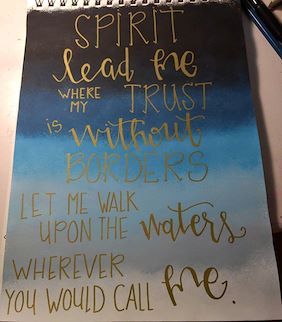 SPIRIT
lead me
WHERE MY TRUST
is without
BORDERS
LET ME WALK
UPON THE waters
WHEREVER
YOU WOULD CALL me.